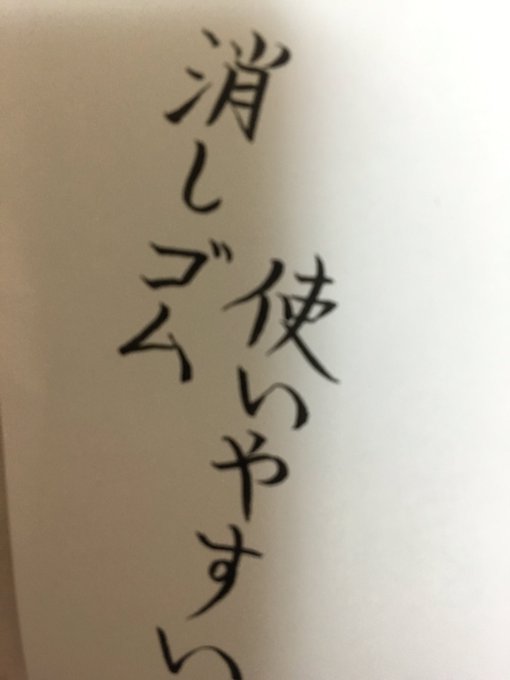 使いやすい
消しゴム